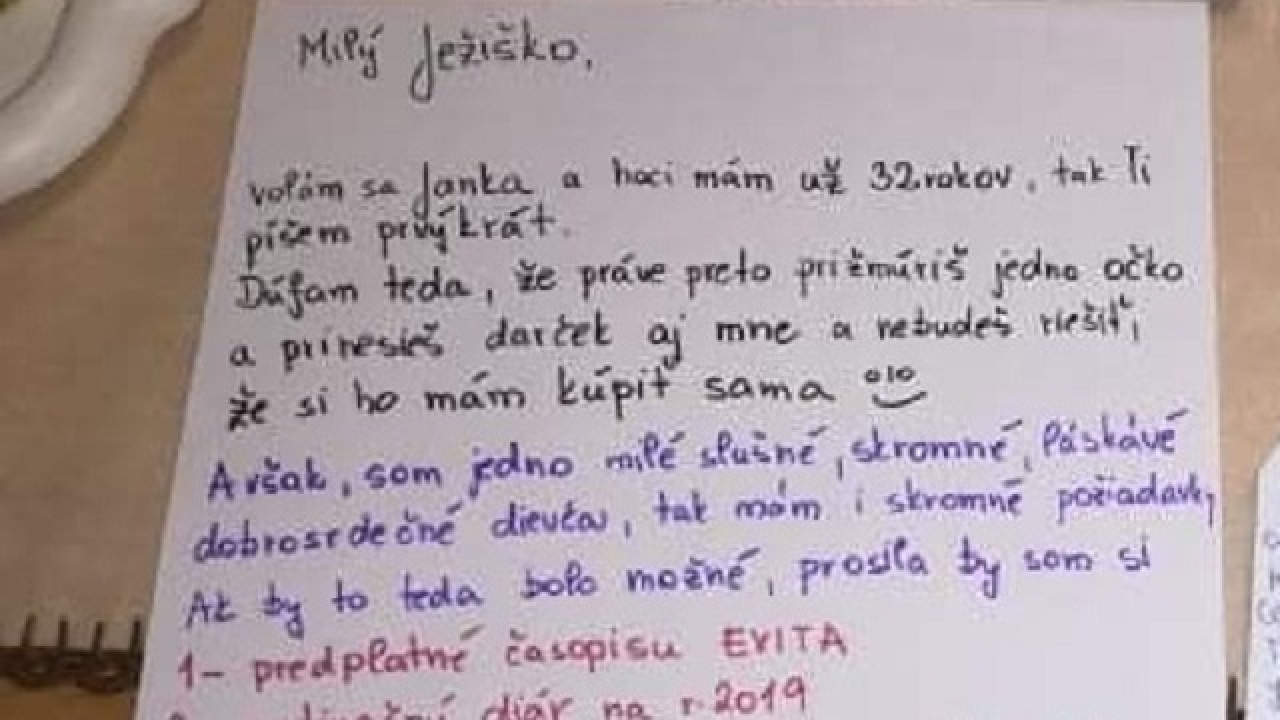 Milý Ježiško,
volám sa Janka a hoci mám už 32 rokov, tak Ti
píšem prvýkrát.
Dúfam teda, že práve preto prižmúriš jedno očko
a prinesieš darček aj mne a nebudeš riešiť,
že si ho mám kúpiť sama
Avšak, som jedno milé slušné, skromné, láskávé
dobrosrdečné dievča, tak mám i skromné požiadavky
Ak by to teda bolo možné, prosila by som si
1- predplatné časopisu EVITA
diár na r. 2019